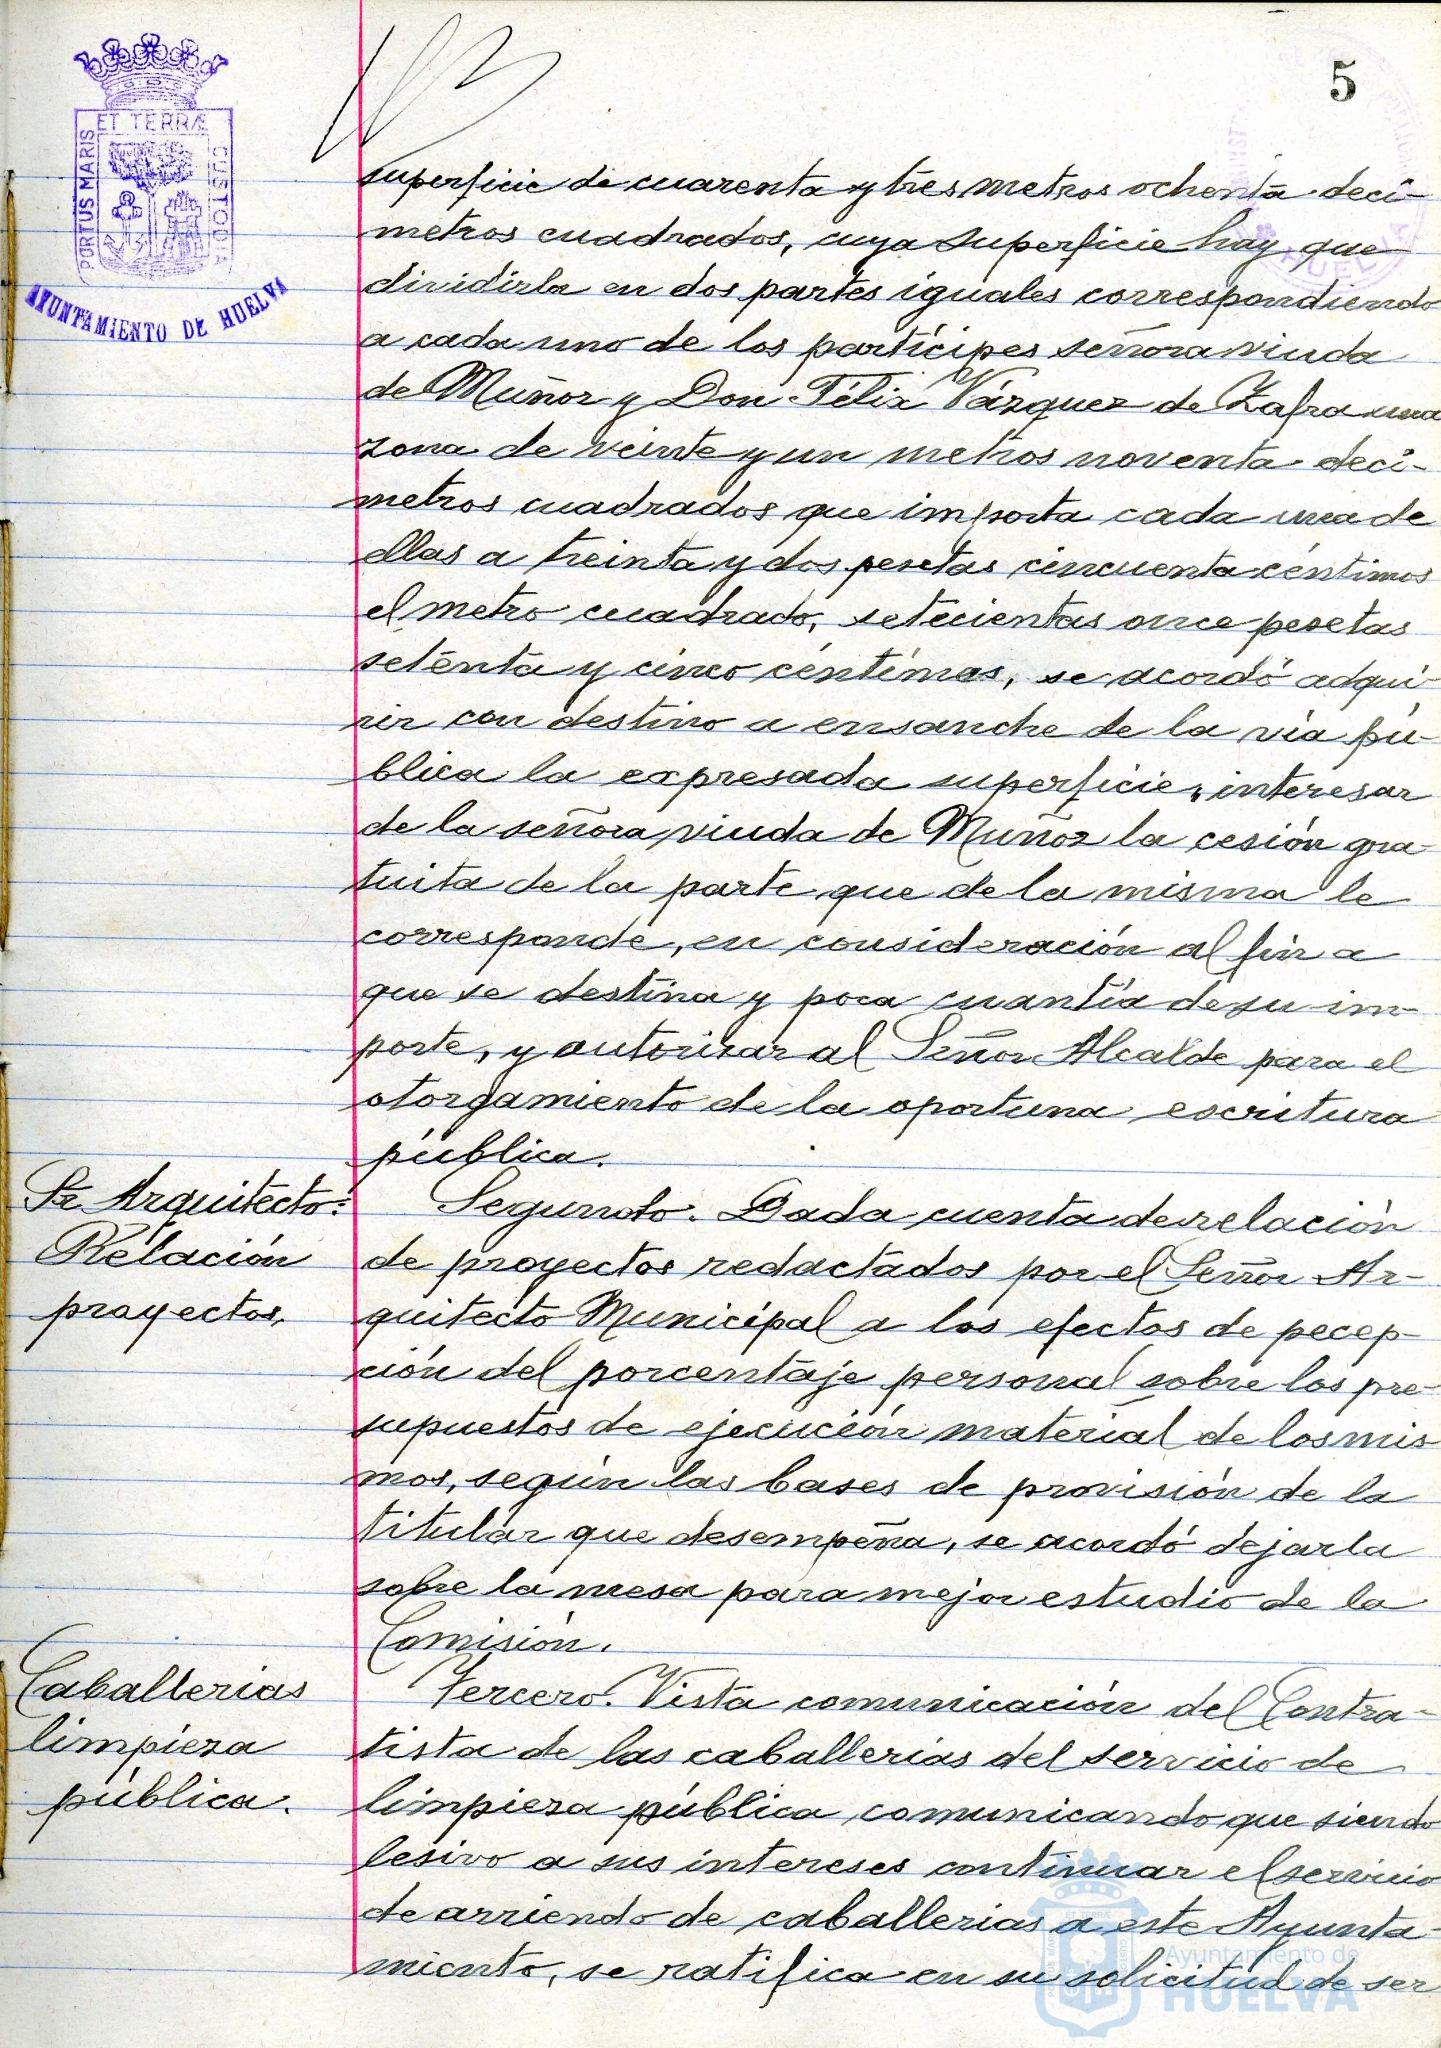 5
ET TERRÆ
PORTUS MARIS
CUSTODIA
AYUNTAMIENTO DE HUELVA
superficie de cuarenta y tres metros ochenta decí-
metros cuadrados, cuya superficie hay que
dividirla en dos partes iguales correspondiendo
a cada uno de los partícipes señora viuda
de Muñoz y Don Félix Vázquez de Zafra una
zona de veinte y un metros noventa decí-
metros cuadrados que importa cada una de
ellas a treinta y dos pesetas cincuenta céntimos
el metro cuadrado, setecientas once pesetas
setenta y cinco céntimos, se acordó adqui-
rir con destino a ensanche de la vía pú-
blica la expresada superficie, interesar
de la señora viuda de Muñoz la cesión gra-
tuita de la parte que de la misma le
corresponde, en consideración al fin a
que se destina y poca cuantía de su im-
porte, y autorizar al Señor Alcalde para el
otorgamiento de la oportuna escritura
pública.
Sr. Arquitecto:
Relación
proyectos.
Segundo. Dada cuenta de relación
de proyectos redactados por el Señor Ar-
quitecto Municipal a los efectos de pecep-
ción del porcentaje personal sobre los pre-
supuestos de ejecución material de los mis-
mos, según las bases de provisión de la
titular que desempeña, se acordó dejarla
sobre la mesa para mejor estudio de la
Comisión.
Caballerías
limpieza
pública.
Tercero. Vista comunicación del Contra-
tista de las caballerías del servicio de
limpieza pública comunicando que siendo
lesivo a sus intereses continuar el servicio
de arriendo de caballerias a este Ayunta-
miento, se ratifica en su solicitud de ser
Ayuntamiento de
HUELVA